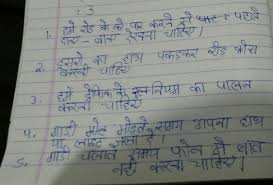 1. हमे रोड के को पार करने से पहले
दाए - बाए देखना चाहिए।
2. दुसरों का हाथ पकड़कर रोड क्रोस
करना चाहिए।
3. हमे ट्रैफिक के नियम का पालन
करना चाहिए।
4. गाडी मोडते समय अपना हाथ
या लाइट
5. गाडी चलाते समय फोन में बात
नहीं करना चाहिए।